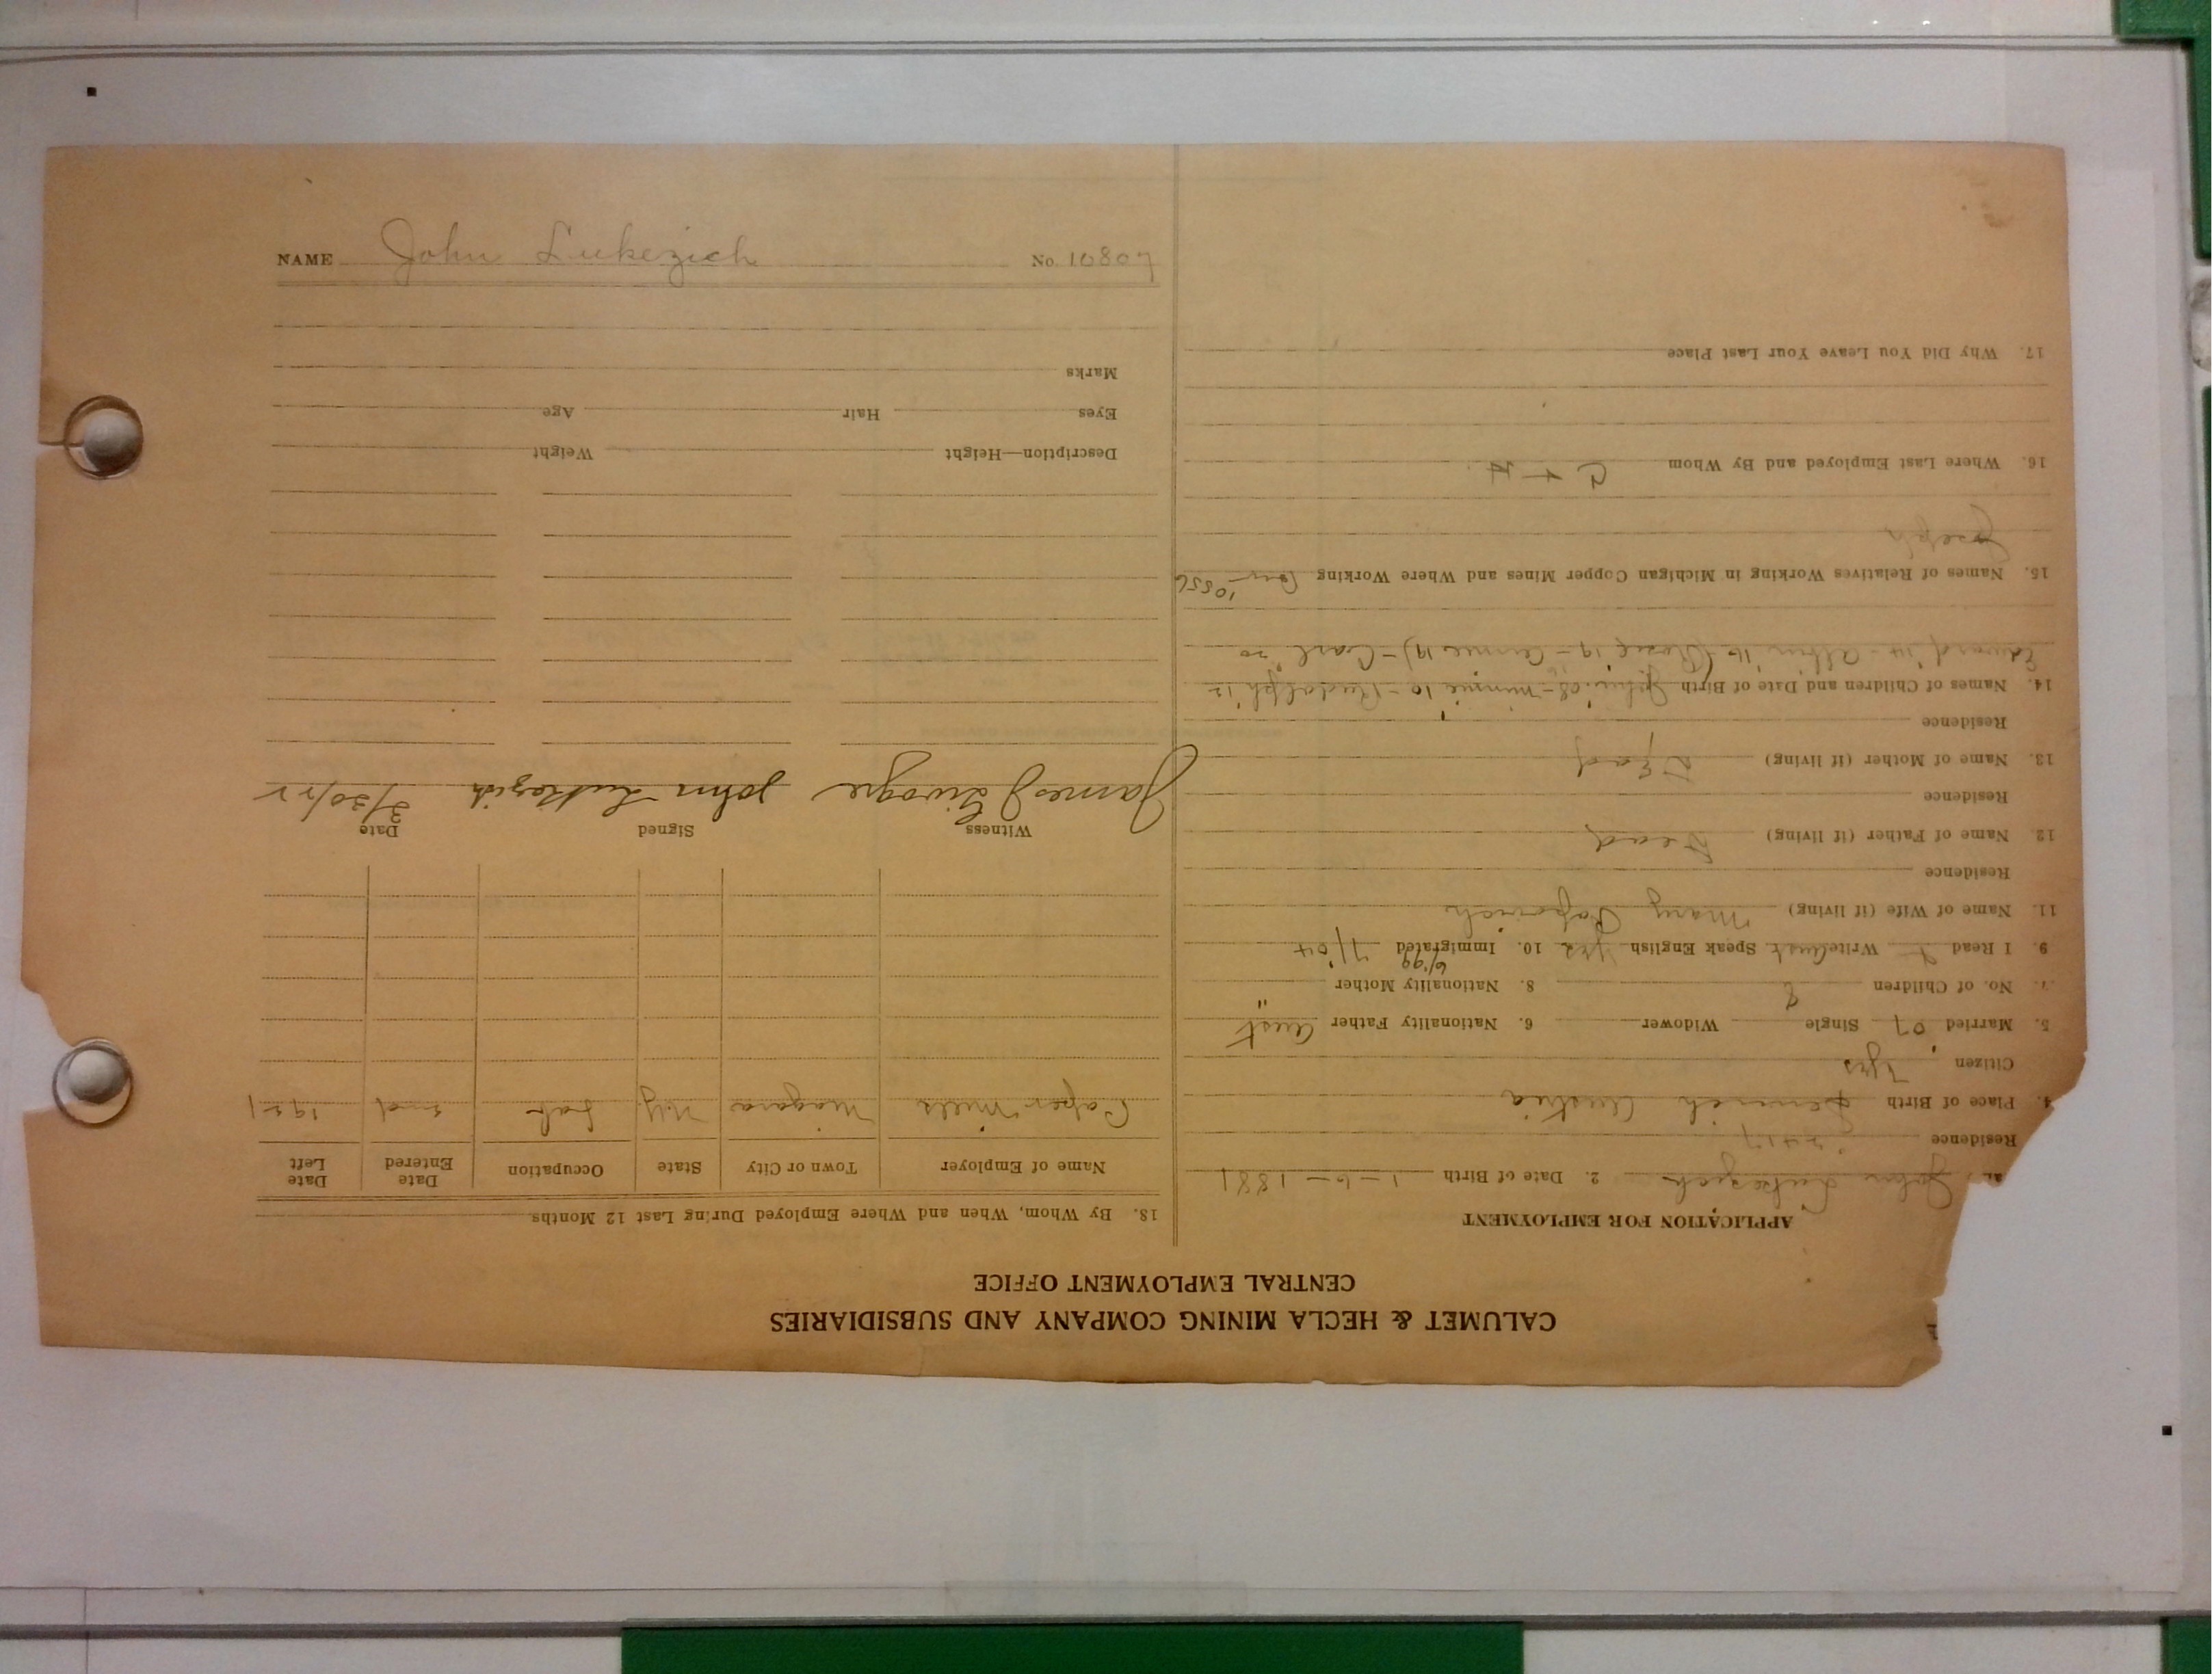 CALUMET & HECLA MINING COMPANY AND SUBSIDIARIES
CENTRAL EMPLOYMENT OFFICE
APPLICATION FOR EMPLOYMENT
John Lukezich 2. Date of Birth 1-6-1881
Residence 2417
4. Place of Birth Austria
Citizen Yes
5. Married '07 Single Widower 6. Nationality Father Aust
7. No. of Children 8 8. Nationality Mother "
9. I Read Write Aust Speak English Yes 10. Immigrated 6/99 7/04
11. Name of Wife (if living) Mary
Residence
12. Name of Father (if living) Dead
Residence
13. Name of Mother (if living) Dead
Residence
14. Names of Children and Date of Birth John '08 - Minnie '10 - Rudolph '12
Edward '14 - Albin '16 (Rosie 19 - Annie 19) - Carl '20
15. Names of Relatives Working in Michigan Copper Mines and Where Working 10556
Joseph
16. Where Last Employed and By Whom C + H
17. Why Did You Leave Your Last Place
18. By Whom, When and Where Employed During Last 12 Months
Name of Employer Town or City State Occupation Date Entered Date Left
Paper Mills Niagara N.Y. Lab 1921
Witness Signed Date
James J John Lukezich 3/30/22
Description—Height Weight
Eyes Hair Age
Marks
NAME John Lukezich No. 10807